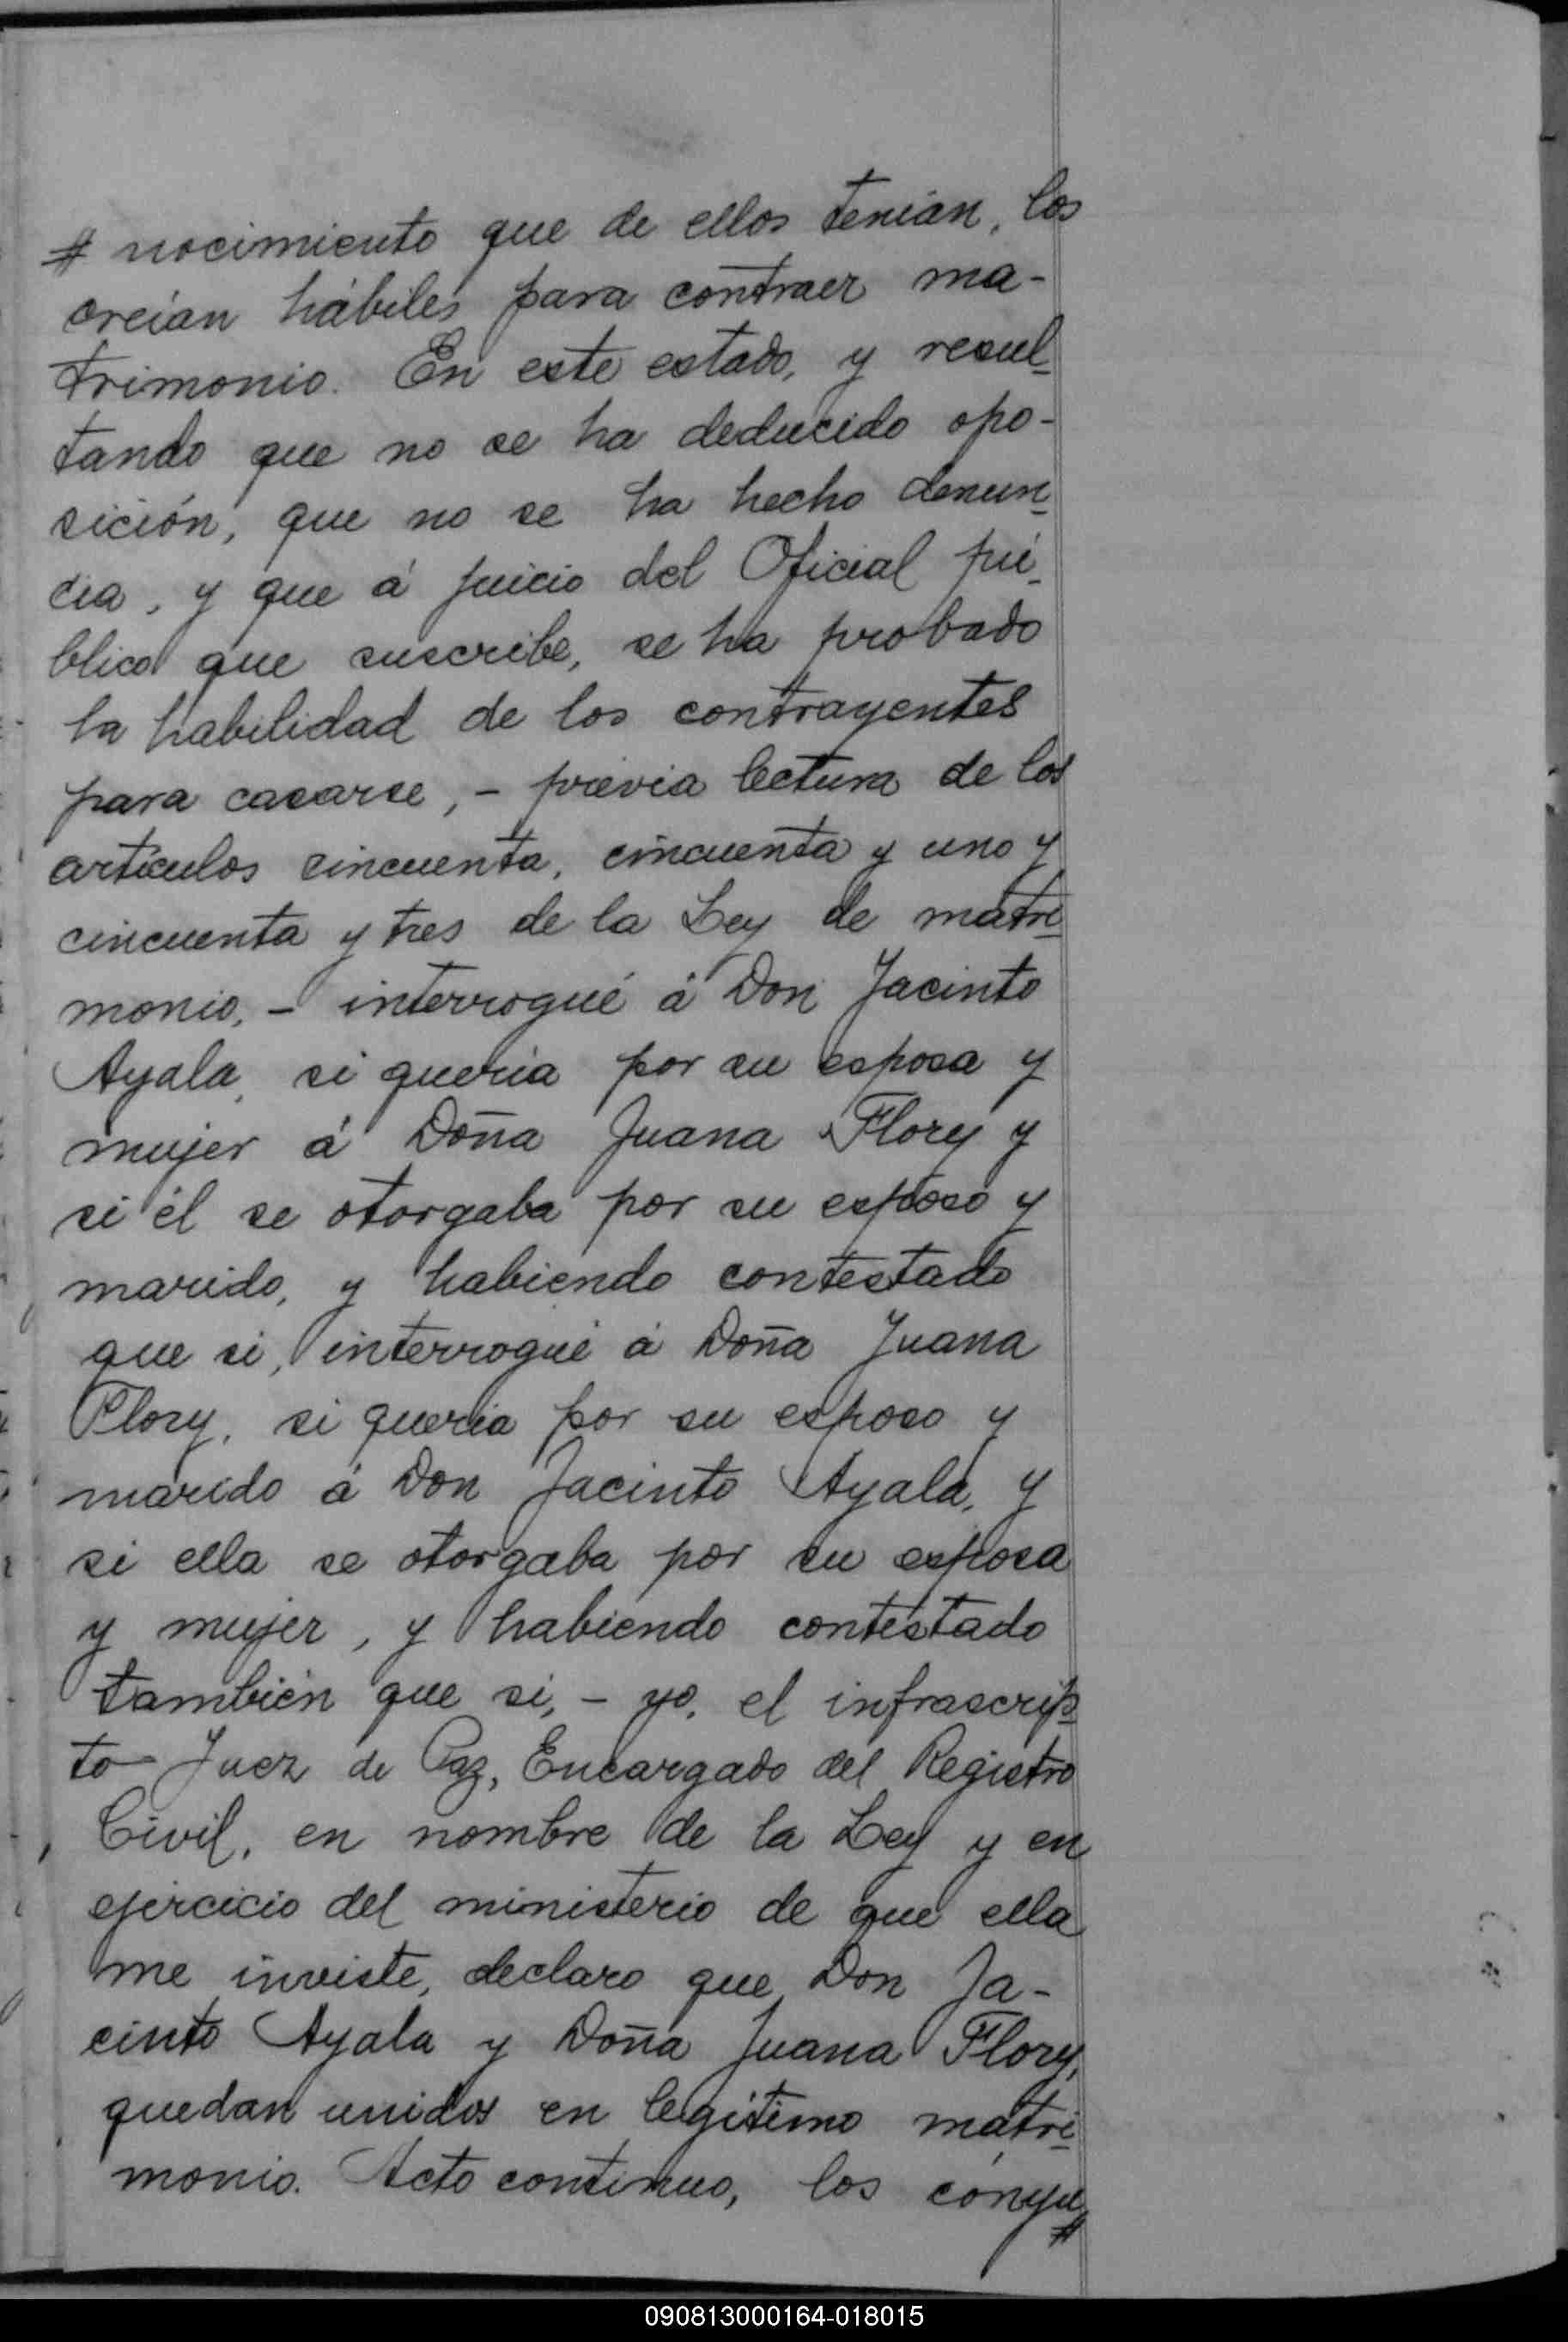 # nocimiento que de ellos tenían, los
creían hábiles para contraer ma-
trimonio. En este estado, y resul-
tando que no se ha deducido opo-
sición, que no se ha hecho denun-
cia, y que á juicio del Oficial pú-
blico que suscribe, se ha probado
la habilidad de los contrayentes
para casarse, - previa lectura de los
artículos cincuenta, cincuenta y uno y
cincuenta y tres de la Ley de matri-
monio, - interrogué á Don Jacinto
Ayala, si quería por su esposa y
mujer á Doña Juana Flory y
si él se otorgaba por su esposo y
marido, y habiendo contestado
que si, interrogué á Doña Juana
Flory, si quería por su esposo y
marido á Don Jacinto Ayala, y
si ella se otorgaba por su esposa
y mujer, y habiendo contestado
también que si, - yo, el infrascrip-
to Juez de Paz, Encargado del Registro
Civil, en nombre de la Ley y en
ejercicio del ministerio de que ella
me inviste, declaro que Don Ja-
cinto Ayala y Doña Juana Flory,
quedan unidos en legítimo matri-
monio. Acto continuo, los cónyu
#
090813000164-018015